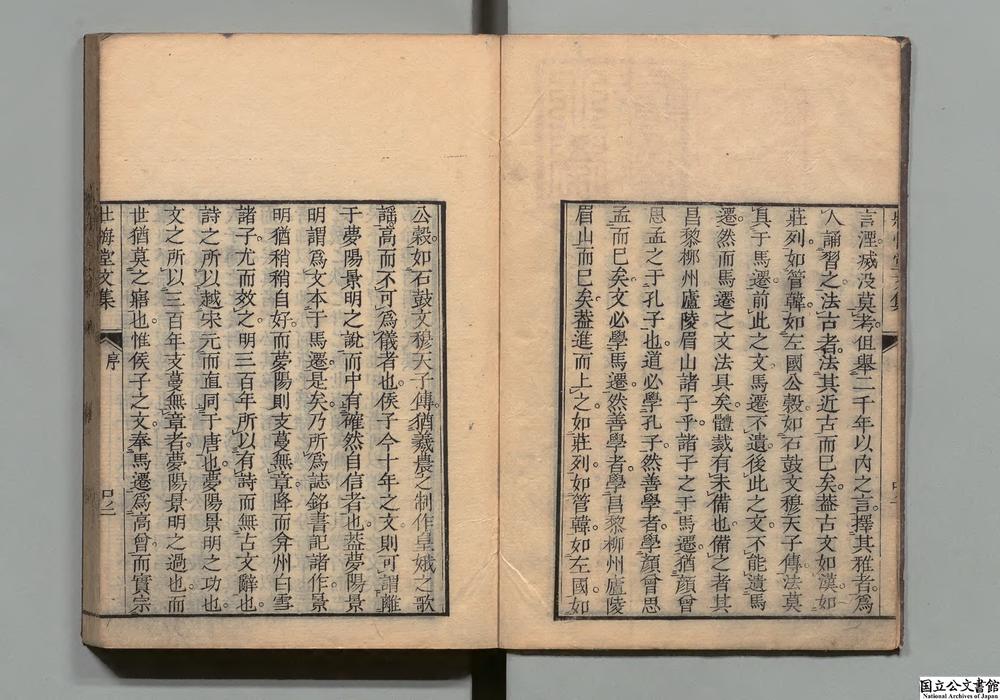 言湮滅没莫考但舉二千年以内之言擇其雅者爲
人誦習之法古者法其近古而已矣蓋古文如漢如
莊列如管韓如左國公穀如石鼓文穆天子傳法莫
具于馬遷前此之文馬遷不遺後此之文不能遺馬
遷然而馬遷之文法具矣體裁有未備也備之者其
昌黎柳州廬陵眉山諸子乎諸子之于馬遷猶顏曾
思孟之于孔子也道必學孔子然善學者學顏曾思
孟而已矣文必學馬遷然善學者學昌黎柳州廬陵
眉山而已矣蓋進而上之如莊列如管韓如左國如
公穀如石鼓文穆天子傳猶羲農之制作皇娥之歌
謠高而不可爲儀者也侯子今十年之文則可謂離
于夢陽景明之說而中有確然自信者也蓋夢陽景
明謂爲文本于馬遷是矣乃所爲誌銘書記諸作景
明猶稍稍自好而夢陽則支蔓無章降而弇州白雪
諸子尤而效之明三百年所以有詩而無古文辭也
詩之所以越宋元而直同于唐也夢陽景明之功也
文之所以三百年支蔓無章者夢陽景明之過也而
世猶莫之寤也惟侯子之文奉馬遷爲高曾而實宗
壮悔堂文集
序
国立公文書館
National Archives of Japan